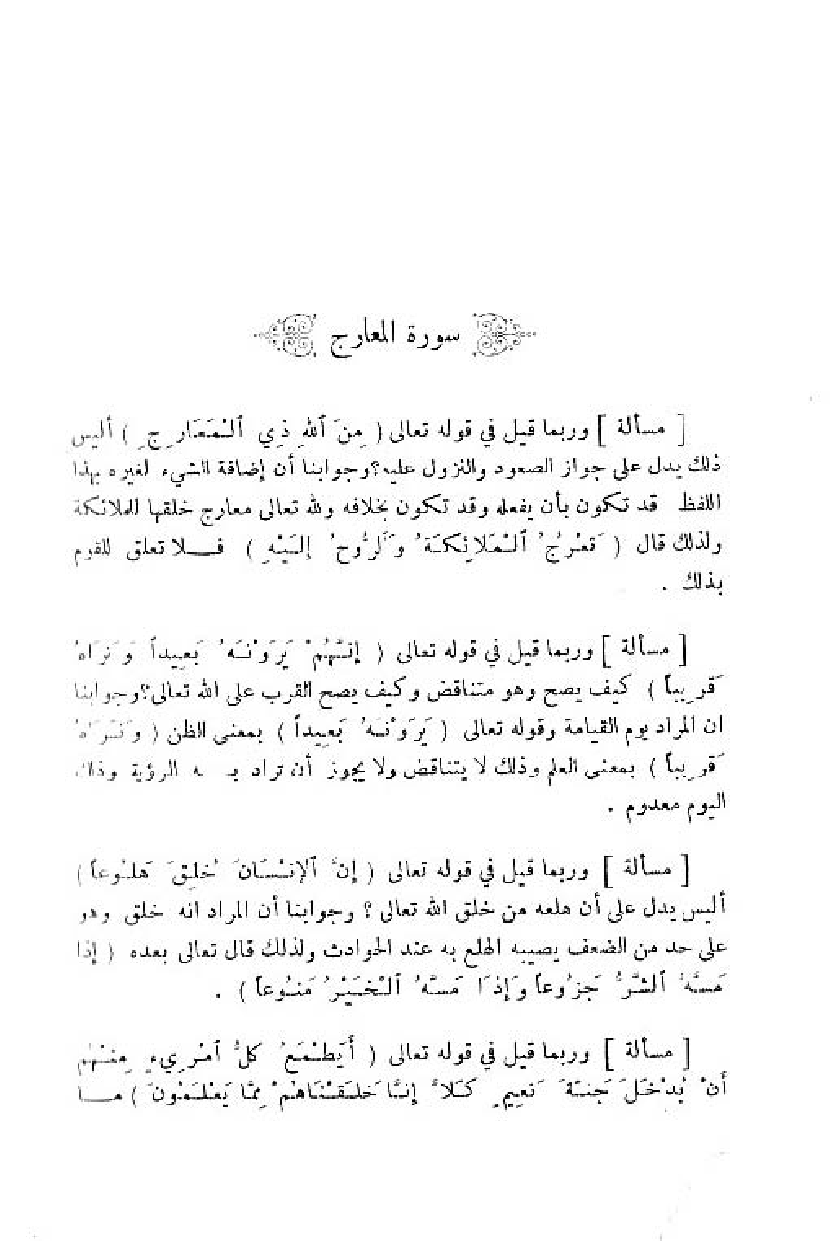 سورة المعارج
[ مسألة ] وربما قيل في قوله تعالى ( مِنَ ٱللهِ ذِي ٱلْمَعَارِجِ ) أليس
ذلك يدل على جواز الصعود والنزول عليه؟ وجوابنا أن إضافة الشيء لغيره بهذا
اللفظ قد تكون بأن يفعله وقد تكون بخلافه ولله تعالى معارج خلقها للملائكة
ولذلك قال ( تَعْرُجُ ٱلْمَلَائِكَةُ وَٱلرُّوحُ إِلَيْهِ ) فـلا تعلق للقوم
بذلك .
[ مسألة ] وربما قيل في قوله تعالى ( إِنَّهُمْ يَرَوْنَهُ بَعِيداً وَنَرَاهُ
قَرِيباً ) كيف يصح وهو متناقض وكيف يصح القرب على الله تعالى؟ وجوابنا
ان المراد يوم القيامة وقوله تعالى ( يَرَوْنَهُ بَعِيداً ) بمعنى الظن ( وَنَرَاهُ
قَرِيباً ) بمعنى العلم وذلك لا يتناقض ولا يجوز أن تراد بـه الرؤية وذلك
اليوم معدوم .
[ مسألة ] وربما قيل في قوله تعالى ( إِنَّ ٱلْإِنْسَانَ خُلِقَ هَلُوعاً )
أليس يدل على أن هلعه من خلق الله تعالى ؟ وجوابنا أن المراد انه خلق وهو
على حد من الضعف يصيبه الهلع به عند الحوادث ولذلك قال تعالى بعده ( إِذَا
مَسَّهُ ٱلشَّرُّ جَزُوعاً وَإِذَا مَسَّهُ ٱلْخَيْرُ مَنُوعاً ) .
[ مسألة ] وربما قيل في قوله تعالى ( أَيَطْمَعُ كُلُّ ٱمْرِيءٍ مِنْهُم
أَنْ يُدْخَلَ جَنَّةَ نَعِيمٍ كَلَّا إِنَّا خَلَقْنَاهُمْ مِمَّا يَعْلَمُونَ ) مـا